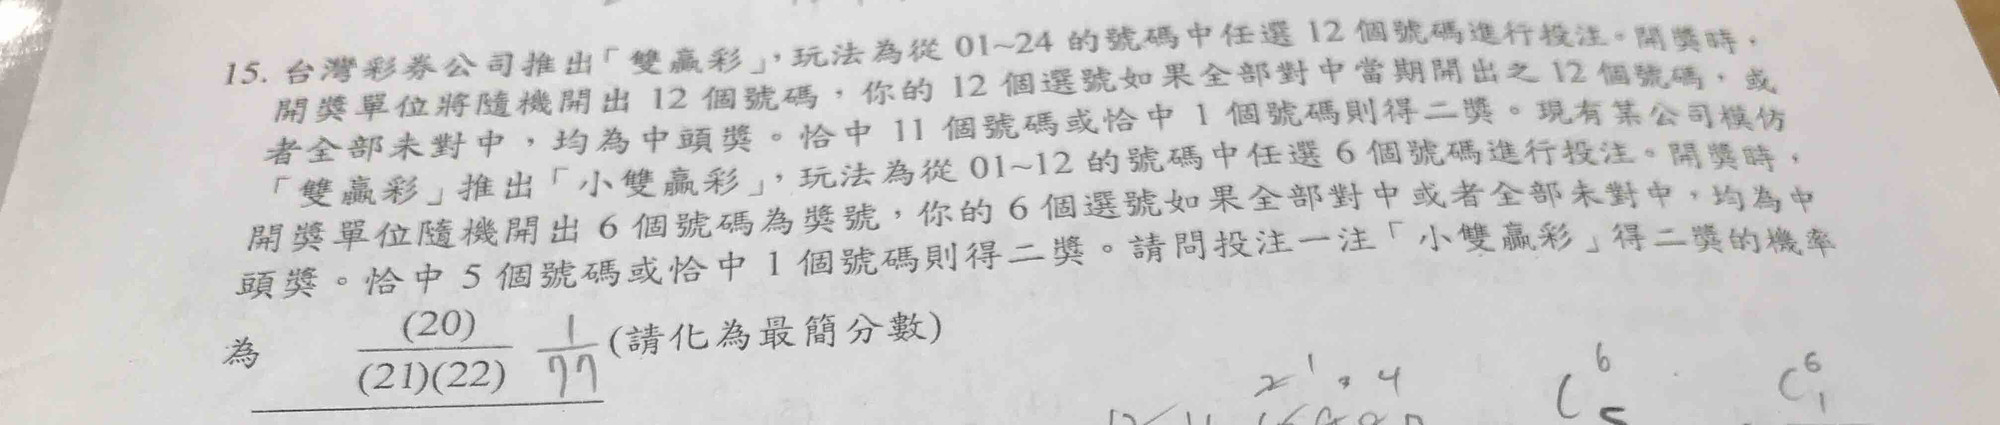 15. 台灣彩券公司推出「雙贏彩」，玩法為從 01~24 的號碼中任選 12 個號碼進行投注。開獎時，
開獎單位將隨機開出 12 個號碼，你的 12 個選號如果全部對中當期開出之 12 個號碼，或
者全部未對中，均為中頭獎。恰中 11 個號碼或恰中 1 個號碼則得二獎。現有某公司模仿
「雙贏彩」推出「小雙贏彩」，玩法為從 01~12 的號碼中任選 6 個號碼進行投注。開獎時，
開獎單位隨機開出 6 個號碼為獎號，你的 6 個選號如果全部對中或者全部未對中，均為中
頭獎。恰中 5 個號碼或恰中 1 個號碼則得二獎。請問投注一注「小雙贏彩」得二獎的機率
為 (20)/(21)(22) 1/77 (請化為最簡分數)
C 6 5 C 6 1